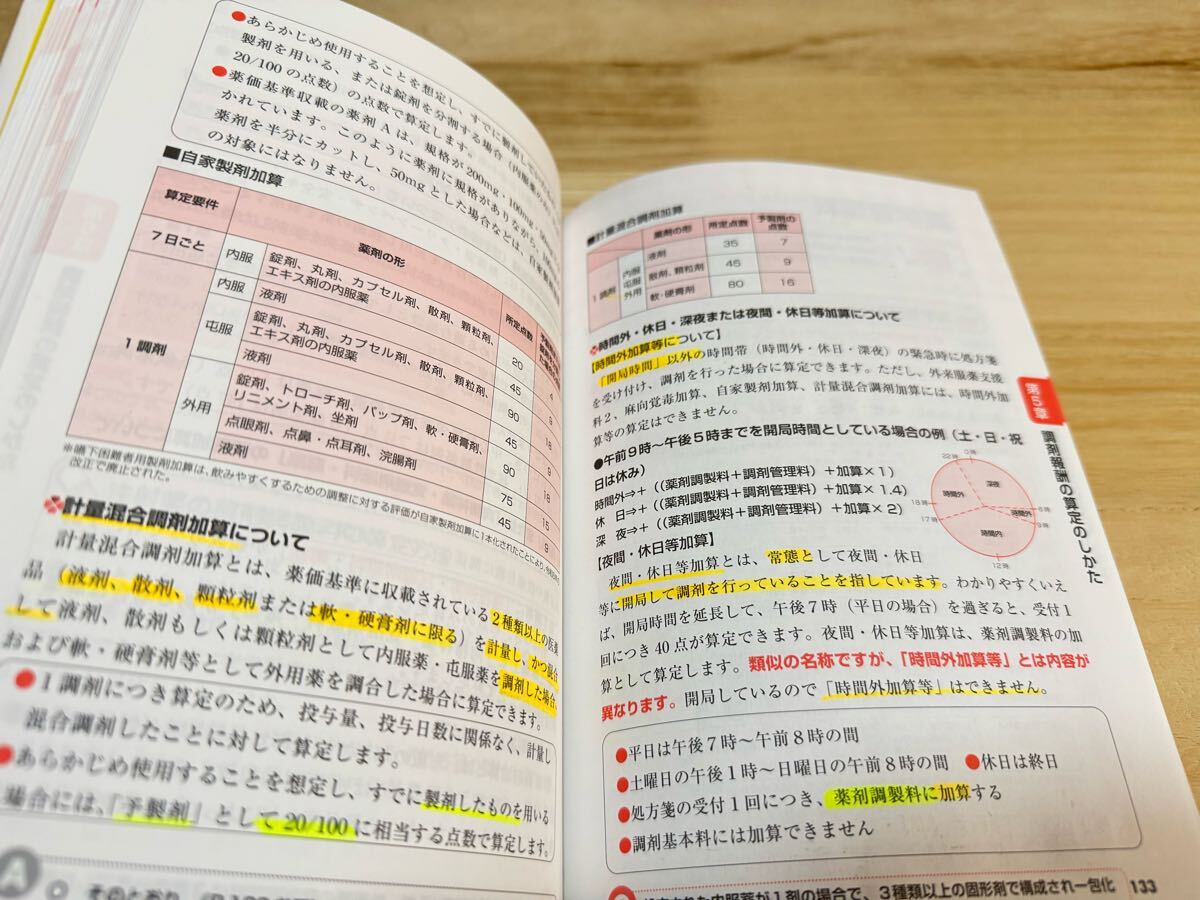 ●あらかじめ使用することを想定し、すでに製剤し
製剤を用いる、または錠剤を分割する場合（内服薬の
20/100の点数）の点数で算定します。
●薬価基準収載の薬剤Aは、規格が200mg・100mg・
かれています。このように薬剤に規格がありながら、100
薬剤を半分にカットし、50mgとした場合などは、自家製剤
の対象にはなりません。
■自家製剤加算
算定要件 薬剤の形 所定点数
7日ごと 内服 錠剤、丸剤、カプセル剤、散剤、顆粒剤、
エキス剤の内服薬 20 4
1調剤 内服 液剤 45 9
屯服 錠剤、丸剤、カプセル剤、散剤、顆粒剤、
エキス剤の内服薬 90 18
液剤 45 9
外用 錠剤、トローチ剤、パップ剤、軟・硬膏剤、
リニメント剤、坐剤 90 18
点眼剤、点鼻・点耳剤、浣腸剤 75 15
液剤 45 9
※嚥下困難者用製剤加算は、飲みやすくするための調整に対する評価が自家製剤加算に1本化されたことにより、
改正で廃止された。
❖計量混合調剤加算について
計量混合調剤加算とは、薬価基準に収載されている2種類以上の医薬
品（液剤、散剤、顆粒剤または軟・硬膏剤に限る）を計量し、かつ混合
して液剤、散剤もしくは顆粒剤として内服薬・屯服薬を調剤した場合、
および軟・硬膏剤等として外用薬を調合した場合に算定できます。
●1調剤につき算定のため、投与量、投与日数に関係なく、計量し
混合調剤したことに対して算定します。
●あらかじめ使用することを想定し、すでに製剤したものを用いる
場合には、「予製剤」として20/100に相当する点数で算定します。
A
■計量混合調剤加算
薬剤の形 所定点数 予製剤の
点数
1調剤 内服
屯服
外用 液剤 35 7
散剤、顆粒剤 45 9
軟・硬膏剤 80 16
❖時間外・休日・深夜または夜間・休日等加算について
【時間外加算等について】
「開局時間」以外の時間帯（時間外・休日・深夜）の緊急時に処方箋
を受け付け、調剤を行った場合に算定できます。ただし、外来服薬支援
料2、麻向覚毒加算、自家製剤加算、計量混合調剤加算には、時間外加
算等の算定はできません。
●午前9時〜午後5時までを開局時間としている場合の例（土・日・祝
日は休み）
時間外⇒＋（（薬剤調製料＋調剤管理料）＋加算×1）
休　日⇒＋（（薬剤調製料＋調剤管理料）＋加算×1.4）
深　夜⇒＋（（薬剤調製料＋調剤管理料）＋加算×2）
22時 0時
時間外 深夜
18時 6時
17時 時間外 9時
時間内
12時
【夜間・休日等加算】
夜間・休日等加算とは、常態として夜間・休日
等に開局して調剤を行っていることを指しています。わかりやすくいえ
ば、開局時間を延長して、午後7時（平日の場合）を過ぎると、受付1
回につき40点が算定できます。夜間・休日等加算は、薬剤調製料の加
算として算定します。類似の名称ですが、「時間外加算等」とは内容が
異なります。開局しているので「時間外加算等」はできません。
●平日は午後7時〜午前8時の間
●土曜日の午後1時〜日曜日の午前8時の間　●休日は終日
●処方箋の受付1回につき、薬剤調製料に加算する
●調剤基本料には加算できません
内服薬が1剤の場合で、3種類以上の固形剤で構成され一包化
133
第5章
調剤報酬の算定のしかた